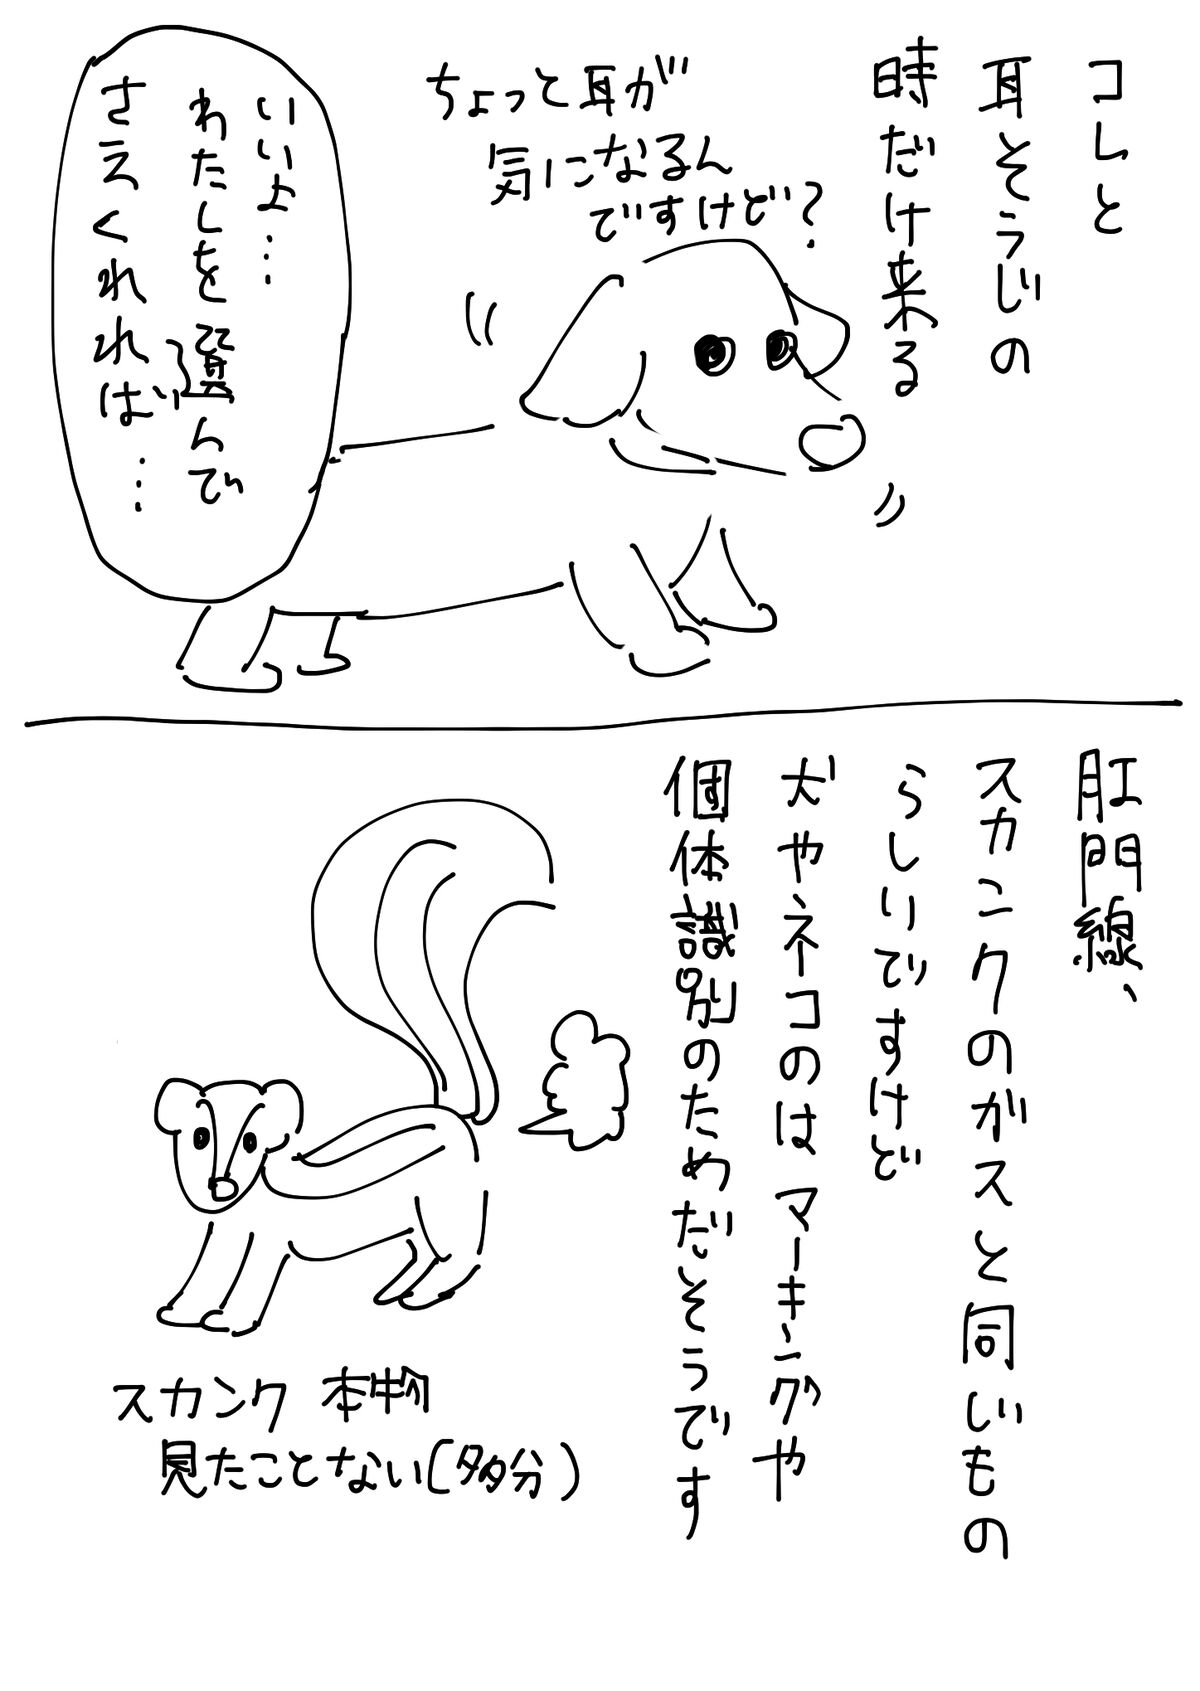 コレと
耳そうじの
時だけ来る
ちょっと耳が
気になるん
ですけど？
いいよ…
わたしを選んで
さえくれれば…
肛門線、
スカンクのガスと同じもの
らしいですけど
犬やネコのはマーキングや
個体識別のためだそうです
スカンク 本物
見たことない(多分)